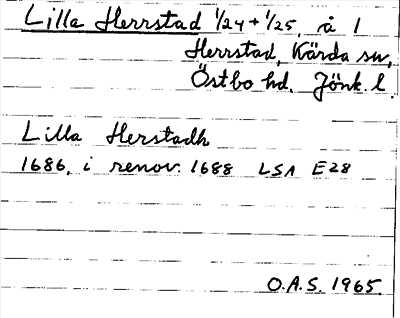 Lilla Herrstad 1/24 + 1/25, å 1
Herrstad, Kärda sn,
Östbo hd. Jönk. l.
Lilla Herstadh
1686, i renov. 1688 LSA E28
O.A.S. 1965.